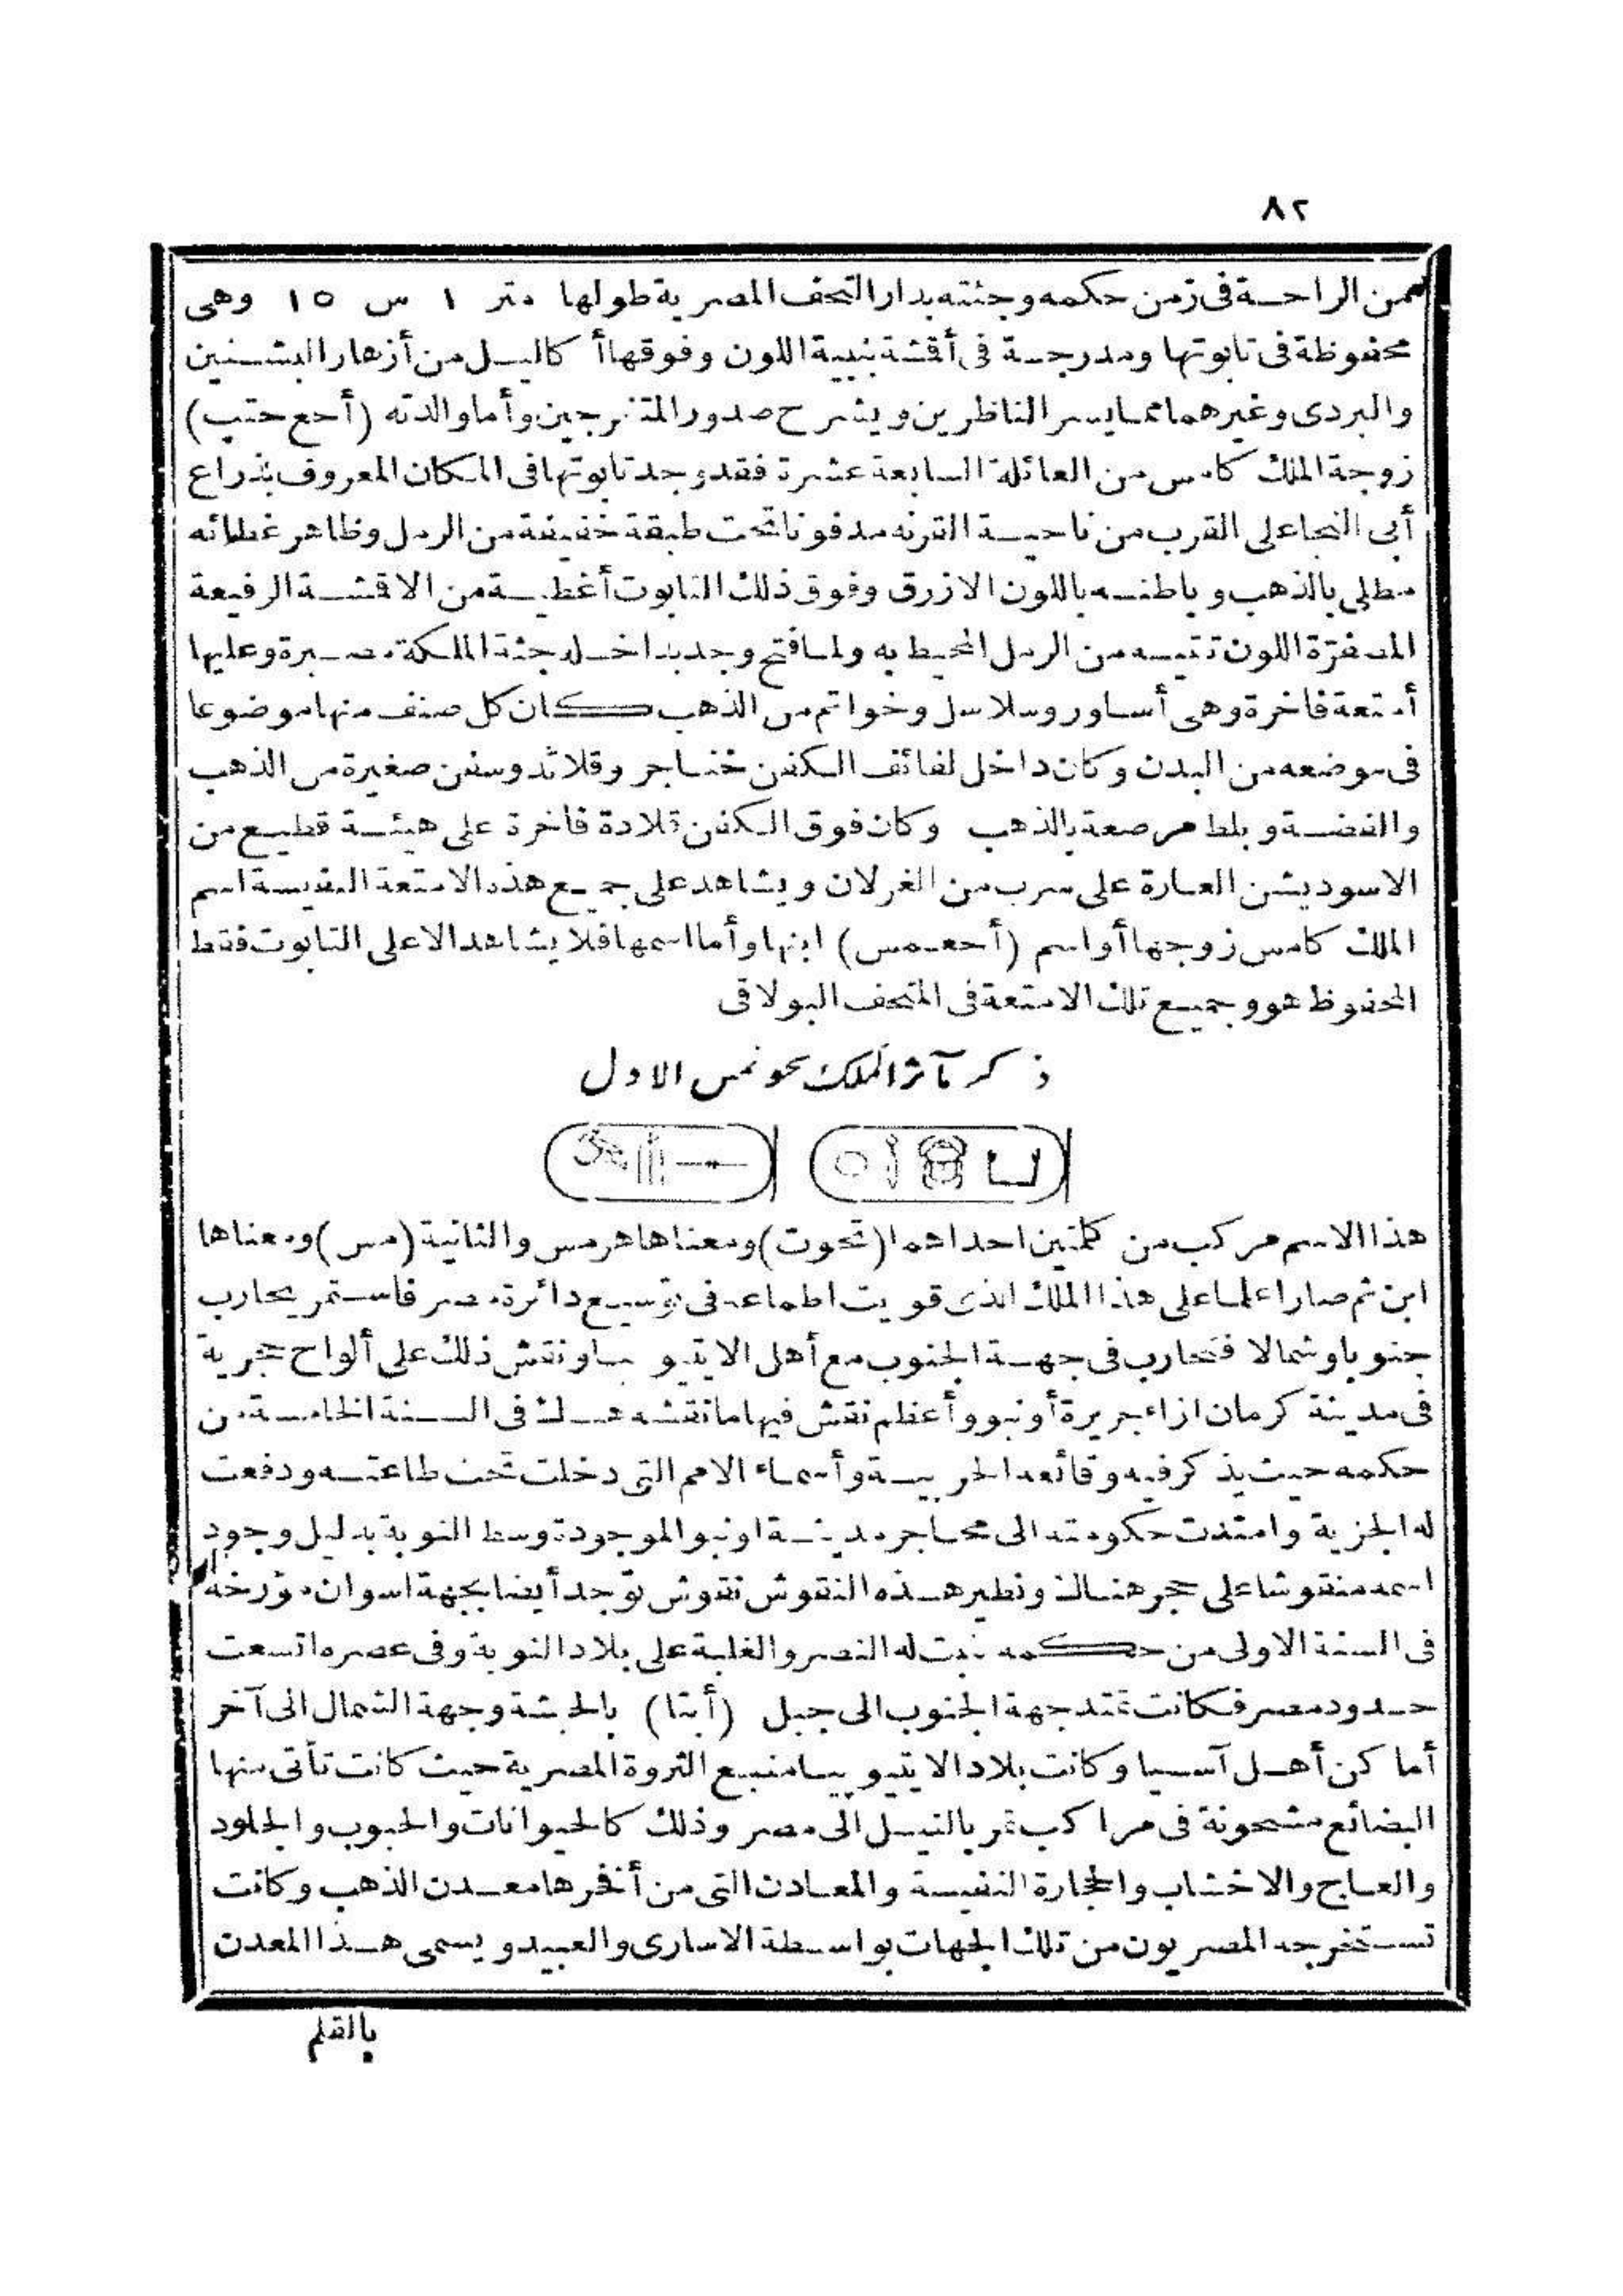 ٨٢
من الراحة فى زمن حكمه وجثته بدار التحف المصرية طولها متر ١ س ١٥ وهى
محفوظة فى تابوتها ومدرجة فى أقشة نبيية اللون وفوقها أ كاليل من أزهار البشنين
والبردى وغيرهما مما يسر الناظرين ويشرح صدور المتفرجين وأما والدته (أحع حتب)
زوجة الملك كامس من العائلة السابعة عشرة فقد وجد تابوتها فى المكان المعروف بذراع
أبى النجا على القرب من ناحية القرنه مدفونا تحت طبقة خفيفة من الرمل وظاهر غطائه
مطلى بالذهب وباطنه باللون الازرق وفوق ذلك التابوت أغطية من الاقشة الرفيعة
المصفرّة اللون تقيه من الرمل المحيط به ولما فتح وجد بداخله جثة الملكة مصبرة وعليها
أمتعة فاخرة وهى أساور وسلاسل وخواتم من الذهب كان كل صنف منها موضوعا
فى موضعه من البدن وكان داخل لفائف الكفن خناجر وقلائد وسفن صغيرة من الذهب
والفضة وبلط مرصعة بالذهب وكان فوق الكفن قلادة فاخرة على هيئة قطيع من
الاسود يشن الغارة على سرب من الغزلان ويشاهد على جميع هذه الامتعة النفيسة اسم
الملك كامس زوجها أو اسم (أحعمس) ابنها وأما اسمها فلا يشاهد الا على التابوت فقط
المحفوظ هو وجميع تلك الامتعة فى المتحف البولاقى
ذكر مآثر الملك تحوتمس الاول
هذا الاسم مركب من كلمتين احداهما (تحوت) ومعناها هرمس والثانية (مس) ومعناها
ابن ثم صارا علما على هذا الملك الذى قويت اطماعه فى توسيع دائرة مصر فاستمر يحارب
جنوبا وشمالا فحارب فى جهة الجنوب مع أهل الايتيوبيا ونقش ذلك على ألواح حجرية
فى مدينة كرمان ازاء جزيرة أونبو وأعظم نقش فيها ما نقشه هناك فى السنة الخامسة من
حكمه حيث يذكر فيه وقائعه الحربية وأسماء الامم التى دخلت تحت طاعته ودفعت
له الجزية وامتدت حكومته الى محاجر مدينة اونبو الموجودة وسط النوبة بدليل وجود
اسمه منقوشا على حجر هناك ونظير هذه النقوش نقوش توجد أيضا بجهة اسوان مؤرخة
فى السنة الاولى من حكمه ثبت له النصر والغلبة على بلاد النوبة وفى عصره اتسعت
حدود مصر فكانت تمتد جهة الجنوب الى جبل (أبتا) بالحبشة وجهة الشمال الى آخر
أماكن أهل آسيا وكانت بلاد الايتيوبيا منبع الثروة المصرية حيث كانت تأتى منها
البضائع مشحونة فى مراكب تمر بالنيل الى مصر وذلك كالحيوانات والحبوب والجلود
والعاج والاخشاب والحجارة النفيسة والمعادن التى من أفخرها معدن الذهب وكانت
تستخرجه المصريون من تلك الجهات بواسطة الاسارى والعبيد ويسمى هذا المعدن
بالقلم